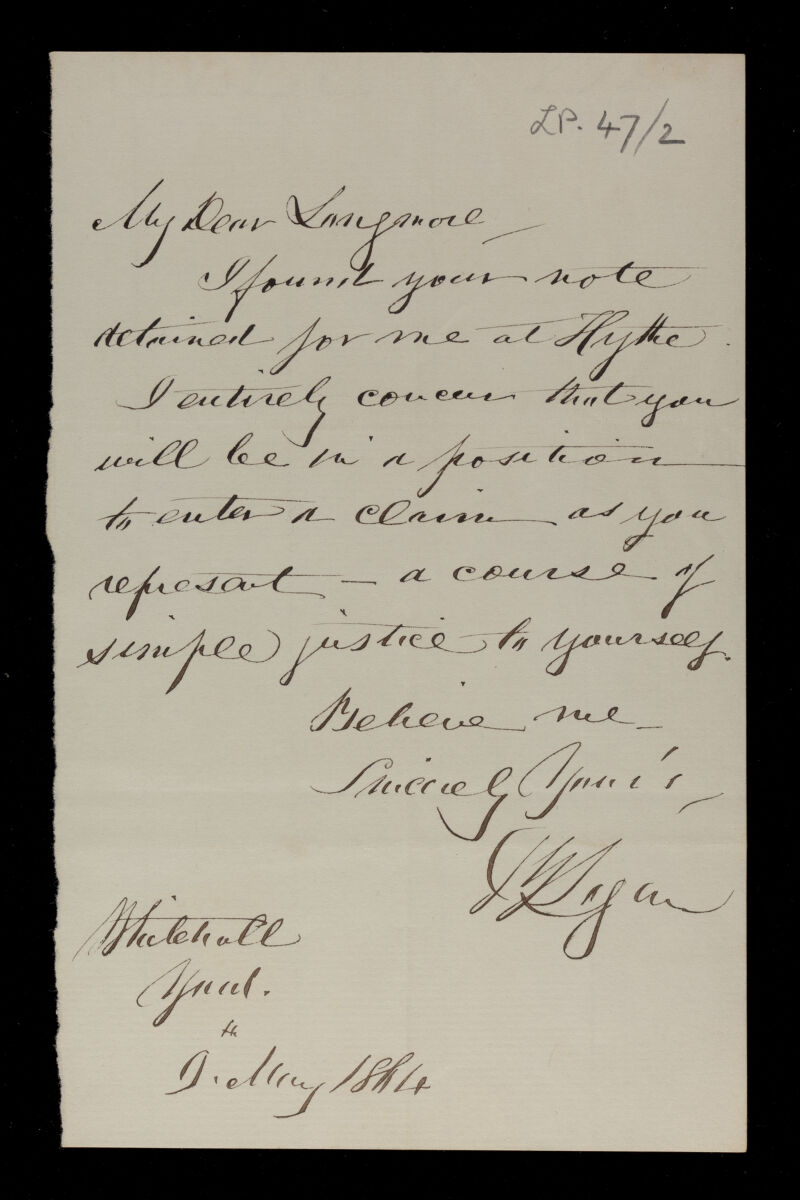 LP. 47/2
My Dear Longmore
I found your note
detained for me at Hythe.
I entirely concur that you
will be in a position
to enter a claim as you
represent - a course of
simple justice to yourself.
Believe me
Sincerely Your's,
Logan
Whitehall
Yard.
9.th May 1864